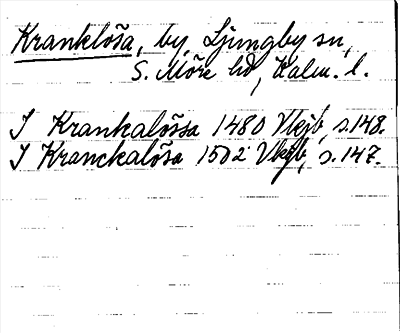 Kranklösa, by, Ljungby sn,
S. Möre hd, Kalm. l.
I Krankalössa 1480 Vkjb, s.148.
I Kranckalösa 1502 Vkjb, s.147.